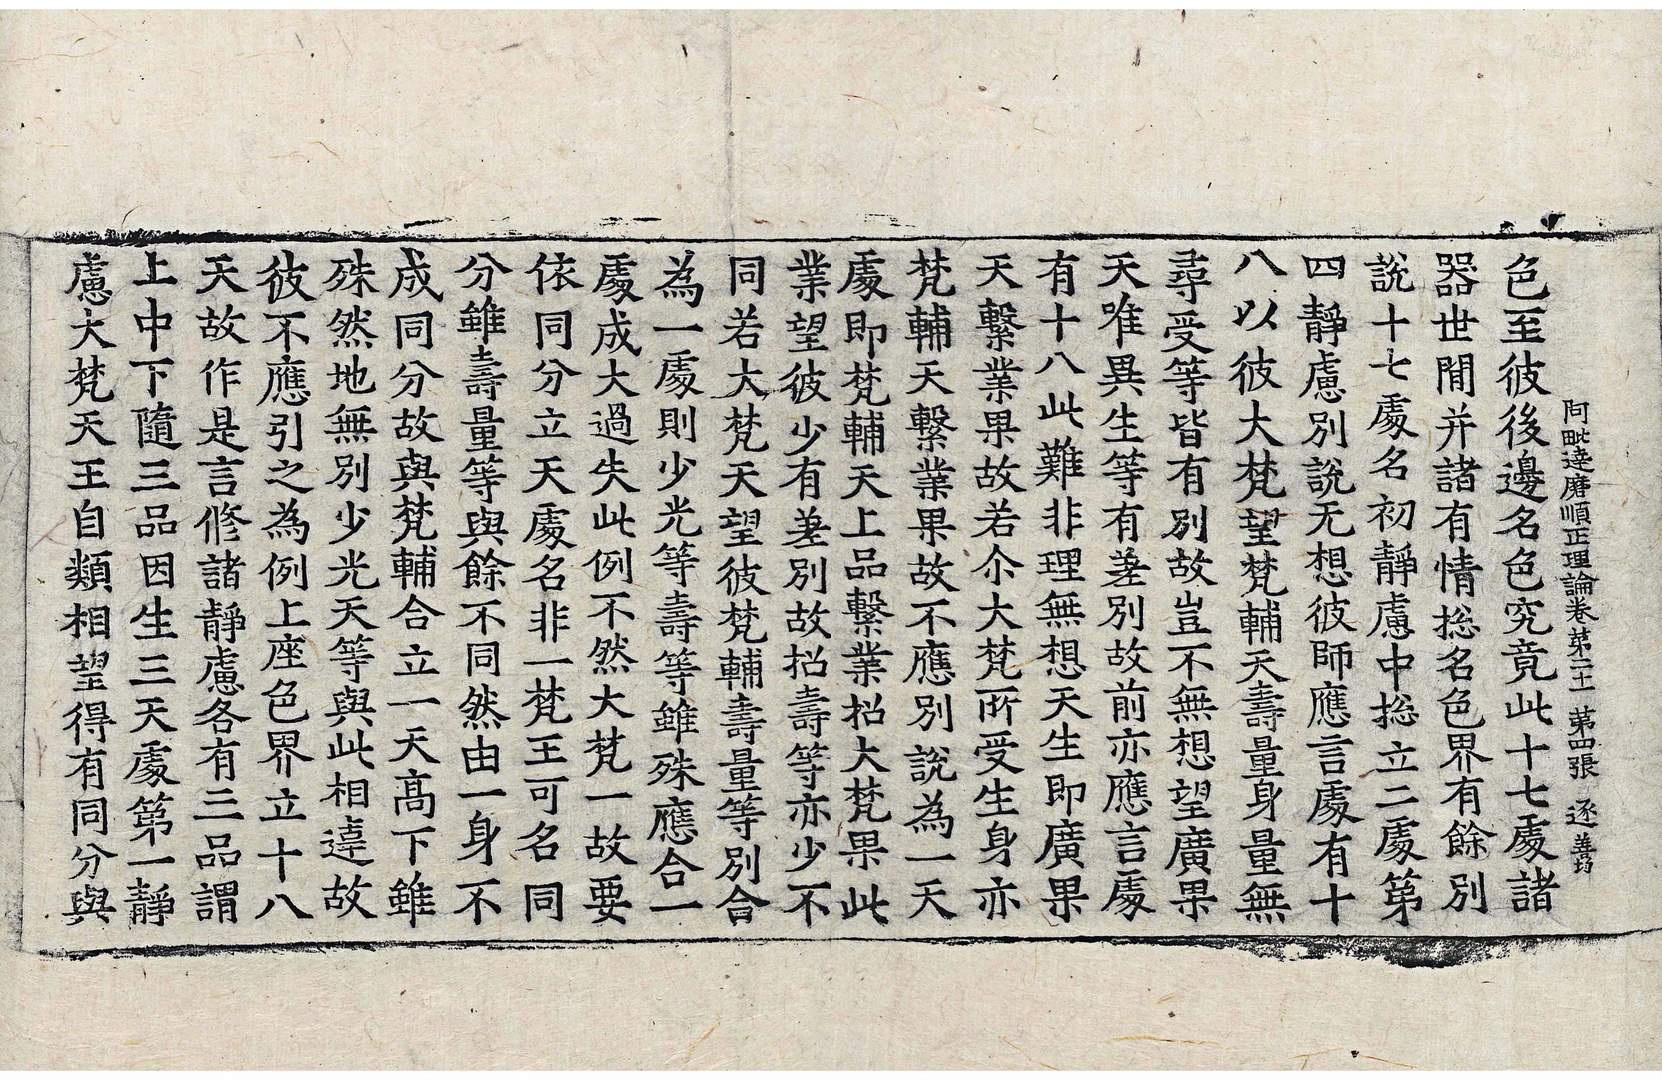 阿毗達磨順正理論卷第二十一　第四張　逐　善均
色至彼後邊名色究竟此十七處諸
器世閒并諸有情揔名色界有餘別
說十七處名初靜慮中揔立二處第
四靜慮別說无想彼師應言處有十
八以彼大梵望梵輔天壽量身量無
尋受等皆有別故豈不無想望廣果
天唯異生等有差別故前亦應言處
有十八此難非理無想天生即廣果
天繫業果故若尒大梵所受生身亦
梵輔天繫業果故不應別說為一天
處即梵輔天上品繫業招大梵果此
業望彼少有差別故招壽等亦少不
同若大梵天望彼梵輔壽量等別合
為一處則少光等壽等雖殊應合一
處成大過失此例不然大梵一故要
依同分立天處名非一梵王可名同
分雖壽量等與餘不同然由一身不
成同分故與梵輔合立一天高下雖
殊然地無別少光天等與此相違故
彼不應引之為例上座色界立十八
天故作是言修諸靜慮各有三品謂
上中下隨三品因生三天處第一靜
慮大梵天王自類相望得有同分與